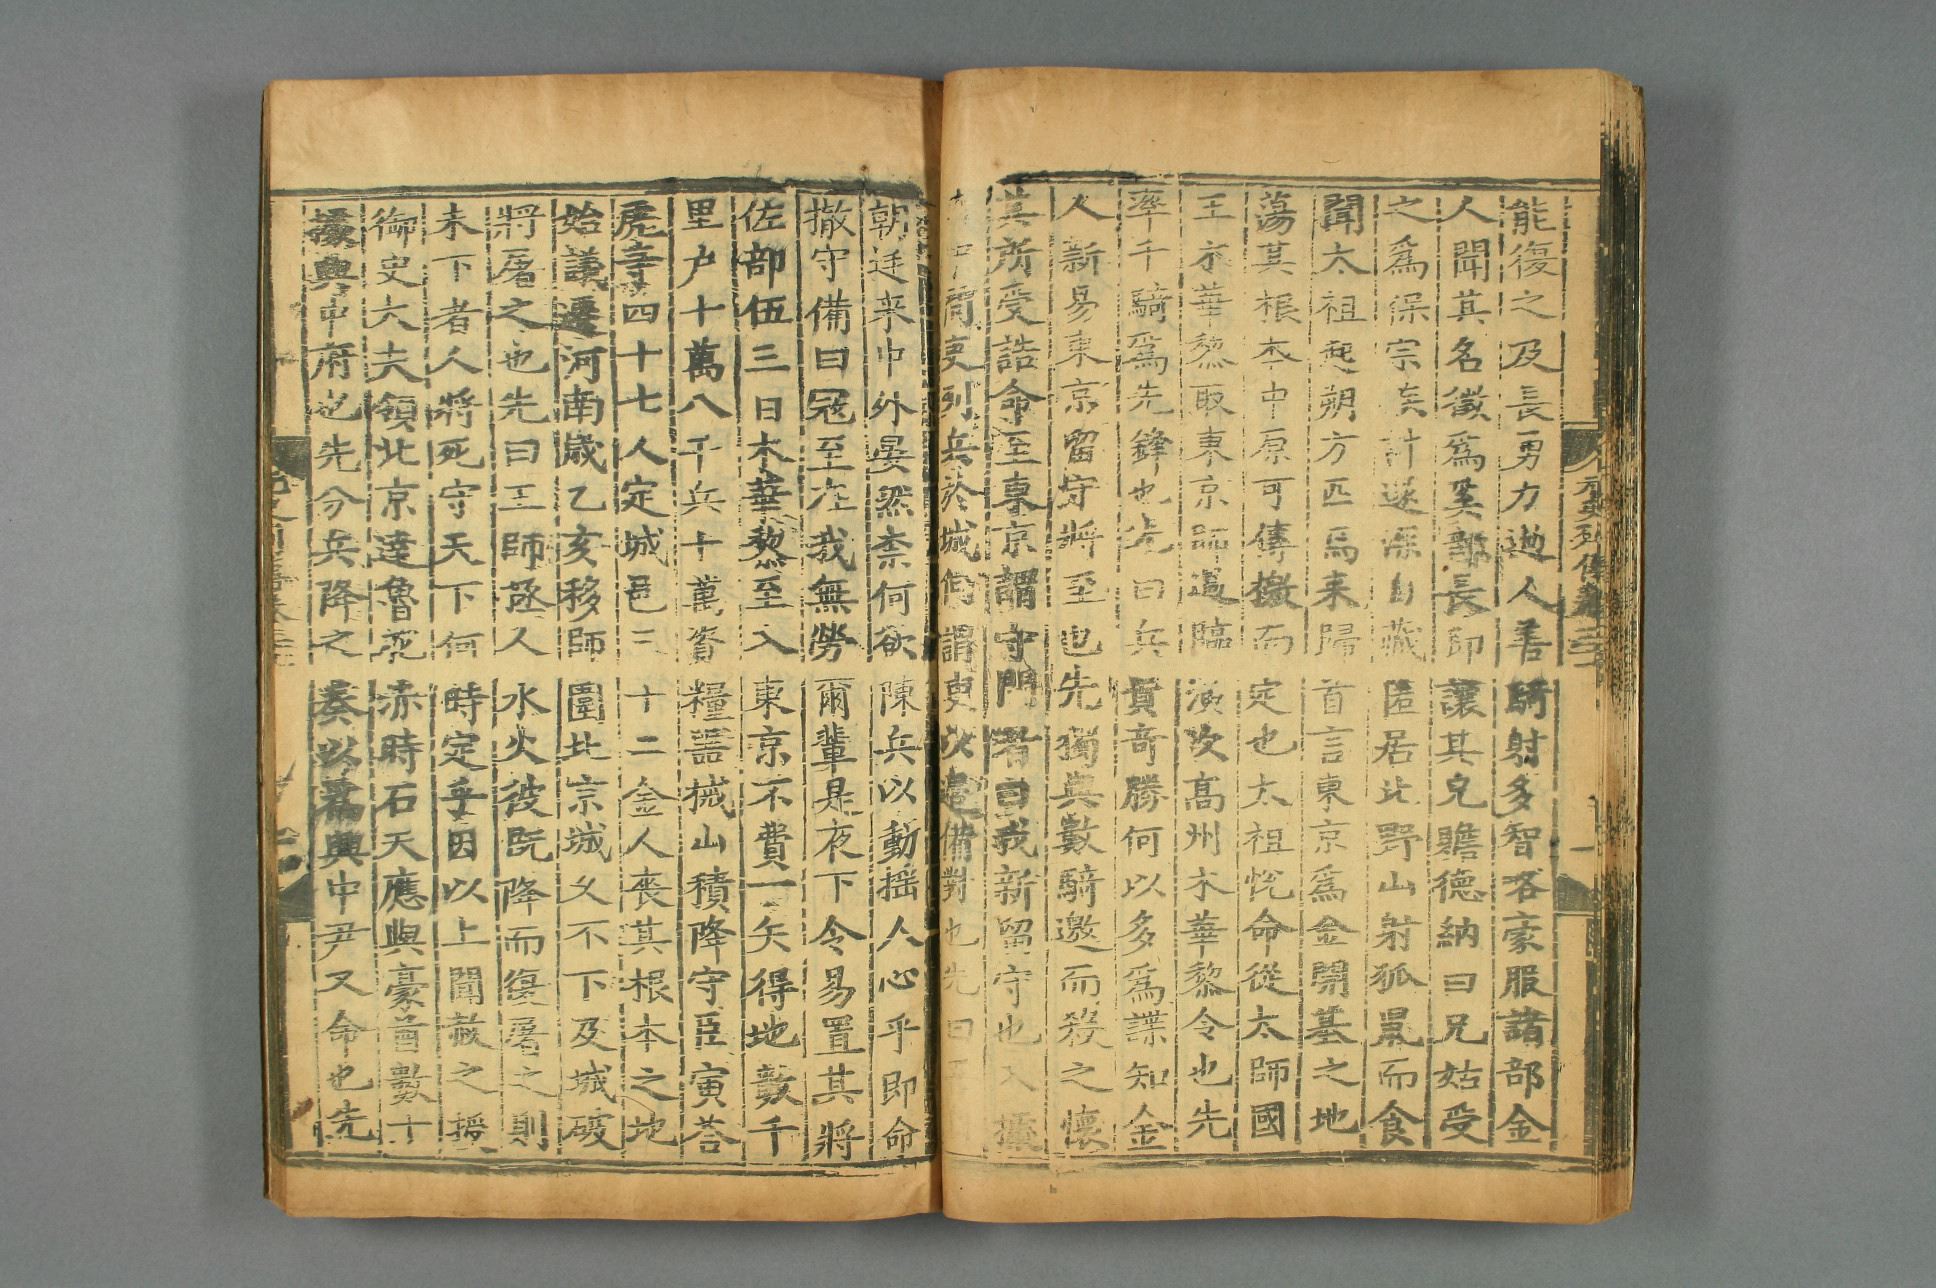 能復之及長勇力過人善騎射多智畧豪服諸部金
人聞其名徵爲奚部長即讓其兄贍德納曰兄姑受
之爲保宗族計遂深自藏匿居北野山射狐鼠而食
聞太祖起朔方匹馬来歸首言東京爲金開基之地
蕩其根本中原可傳檄而定也太祖悅命從太師國
王木華黎取東京師過臨潢次高州木華黎令也先
率千騎爲先鋒也先曰兵貴奇勝何以多爲諜知金
人新易東京留守將至也先獨與數騎邀而殺之懷
其所受誥命至東京謂守門者曰我新留守也入據
府中問吏列兵於城何謂吏以邊備對也先曰吾
朝廷来中外晏然柰何欲陳兵以動揺人心乎即命
撤守備曰冦至在我無勞爾輩是夜下令易置其將
佐部伍三日木華黎至入東京不費一矢得地數千
里户十萬八千兵十萬資糧噐械山積降守臣寅荅
虎等四十七人定城邑三十二金人喪其根本之地
始議遷河南歲乙亥移師圍北京城久不下及城破
將屠之也先曰王師拯人水火彼既降而復屠之則
未下者人將死守天下何時定乎因以上聞赦之授
御史大夫領北京達魯花赤時石天應與豪酋數十
據興中府也先分兵降之奏以爲興中尹又命也先
元史列傳卷三十